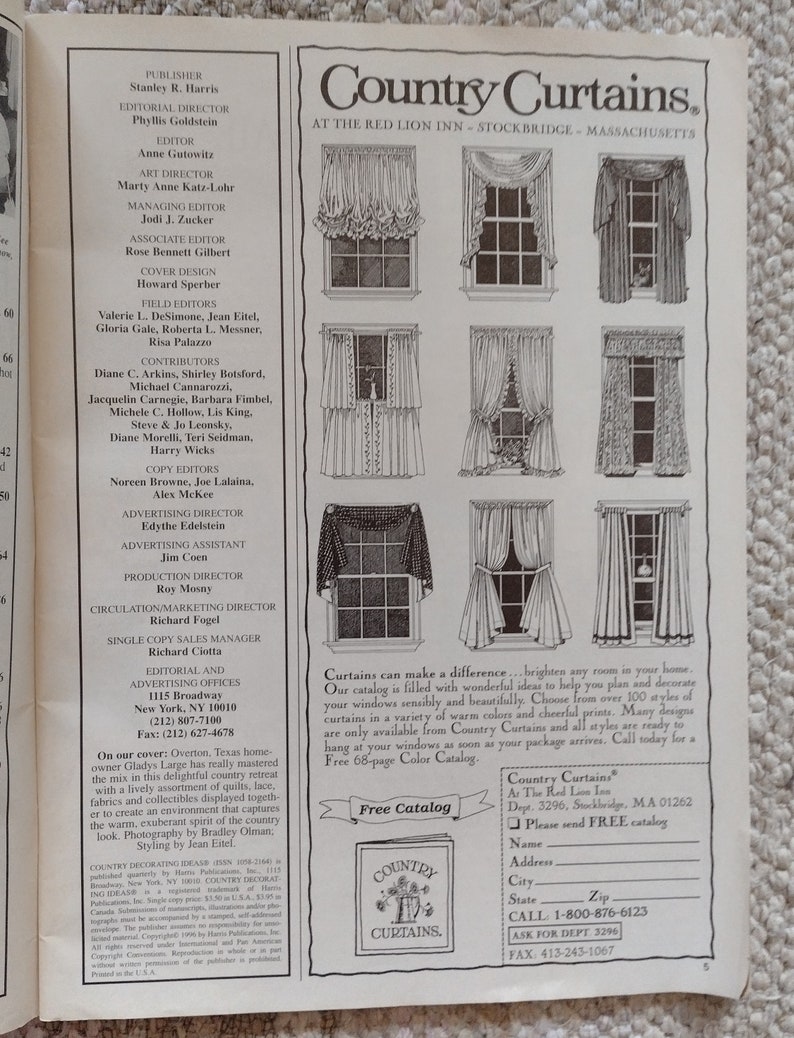 60
66
42
50
PUBLISHER
Stanley R. Harris
EDITORIAL DIRECTOR
Phyllis Goldstein
EDITOR
Anne Gutowitz
ART DIRECTOR
Marty Anne Katz-Lohr
MANAGING EDITOR
Jodi J. Zucker
ASSOCIATE EDITOR
Rose Bennett Gilbert
COVER DESIGN
Howard Sperber
FIELD EDITORS
Valerie L. DeSimone, Jean Eitel,
Gloria Gale, Roberta L. Messner,
Risa Palazzo
CONTRIBUTORS
Diane C. Arkins, Shirley Botsford,
Michael Cannarozzi,
Jacquelin Carnegie, Barbara Fimbel,
Michele C. Hollow, Lis King,
Steve & Jo Leonsky,
Diane Morelli, Teri Seidman,
Harry Wicks
COPY EDITORS
Noreen Browne, Joe Lalaina,
Alex McKee
ADVERTISING DIRECTOR
Edythe Edelstein
ADVERTISING ASSISTANT
Jim Coen
PRODUCTION DIRECTOR
Roy Mosny
CIRCULATION/MARKETING DIRECTOR
Richard Fogel
SINGLE COPY SALES MANAGER
Richard Ciotta
EDITORIAL AND
ADVERTISING OFFICES
1115 Broadway
New York, NY 10010
(212) 807-7100
Fax: (212) 627-4678
On our cover: Overton, Texas home-
owner Gladys Large has really mastered
the mix in this delightful country retreat
with a lively assortment of quilts, lace,
fabrics and collectibles displayed togeth-
er to create an environment that captures
the warm, exuberant spirit of the country
look. Photography by Bradley Olman;
Styling by Jean Eitel.
COUNTRY DECORATING IDEAS® (ISSN 1058-2164) is
published quarterly by Harris Publications, Inc., 1115
Broadway, New York, NY 10010. COUNTRY DECORAT-
ING IDEAS® is a registered trademark of Harris
Publications, Inc. Single copy price: $3.50 in U.S.A., $3.95 in
Canada. Submissions of manuscripts, illustrations and/or pho-
tographs must be accompanied by a stamped, self-addressed
envelope. The publisher assumes no responsibility for unso-
licited material. Copyright© 1996 by Harris Publications, Inc.
All rights reserved under International and Pan American
Copyright Conventions. Reproduction in whole or in part
without written permission of the publisher is prohibited.
Printed in the U.S.A.
Country Curtains®
AT THE RED LION INN ~ STOCKBRIDGE ~ MASSACHUSETTS
Curtains can make a difference...brighten any room in your home.
Our catalog is filled with wonderful ideas to help you plan and decorate
your windows sensibly and beautifully. Choose from over 100 styles of
curtains in a variety of warm colors and cheerful prints. Many designs
are only available from Country Curtains and all styles are ready to
hang at your windows as soon as your package arrives. Call today for a
Free 68-page Color Catalog.
Free Catalog
COUNTRY
CURTAINS.
Country Curtains®
At The Red Lion Inn
Dept. 3296, Stockbridge, MA 01262
❏ Please send FREE catalog
Name
Address
City
State Zip
CALL: 1-800-876-6123
ASK FOR DEPT. 3296
FAX: 413-243-1067
5